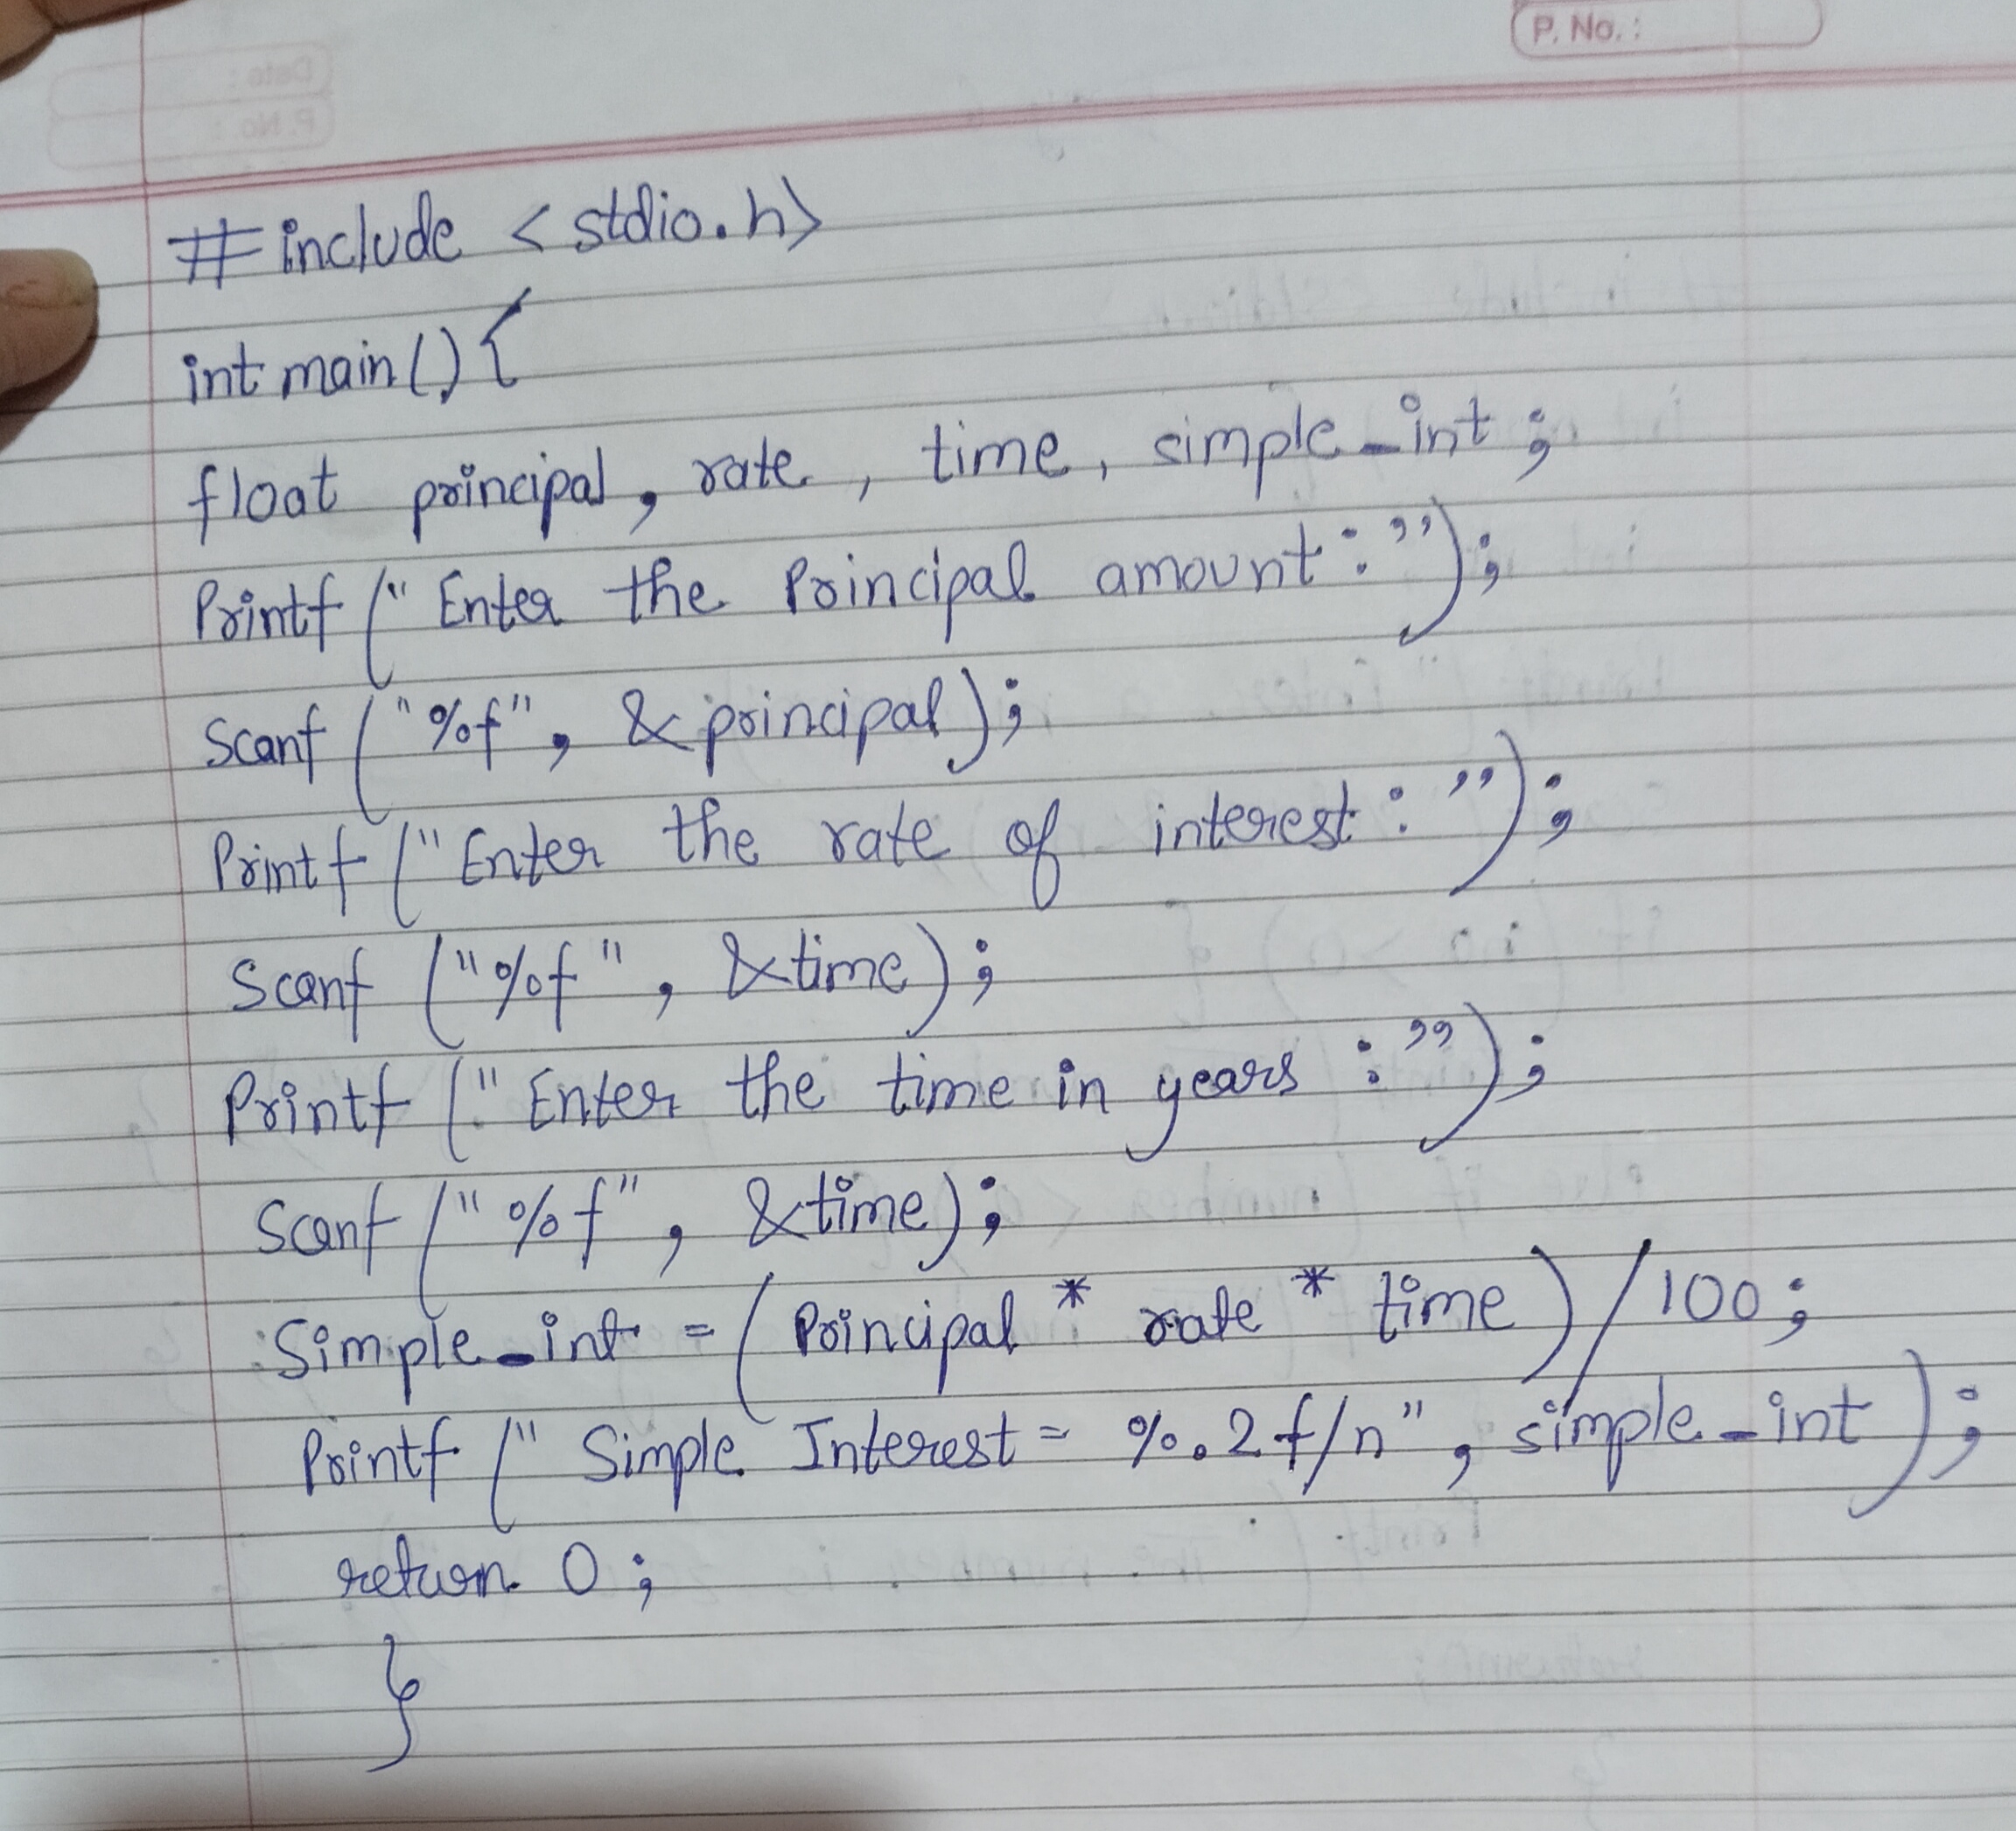 P. No. :
Date :
P. No. :
#include <stdio.h>
int main() {
float principal, rate, time, simple_int;
Printf ("Enter the Principal amount : ");
Scanf ("%f", &principal);
Printf ("Enter the rate of interest : ");
Scanf ("%f", &time);
Printf ("Enter the time in years : ");
Scanf ("%f", &time);
Simple_int = (Principal * rate * time) / 100;
Printf ("Simple Interest = %.2f/n", simple_int);
return 0;
}